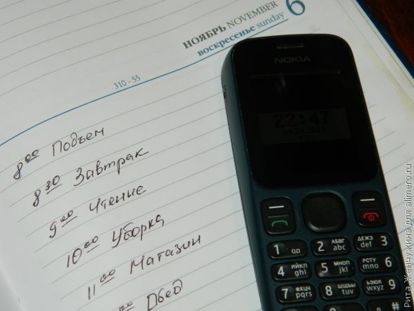 НОЯБРЬ NOVEMBER
воскресенье sunday 6
310 - 55
8 00 Подъем
8 30 Завтрак
9 00 Чтение
10 00 Уборка
11 00 Магазин
00 Обед
NOKIA
22:47
1 оо
2 абвг abc
3 дежз def
4 ийкл ghi
5 мноп jkl
6 рсту mno
7 фхцч pqrs
8 шщъы tuv
9 ьэюя wxyz